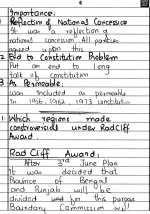 6
Importance:
Reflection of National Concesios
It was a reflection of
national concession All parties
agreed upon this
End to Constitution Problem
Put an end to long
talk of constitution
As Permeable:
was included as permeable
In 1956, 1962, 1973 constitution
Which regions made
controversial under RadCliff
Award.
Rad Cliff Award:
After 3rd June Plan
It was decided that
Province of Bengal
and Punjab will be
divided and for this purpose
Boundary Commission will